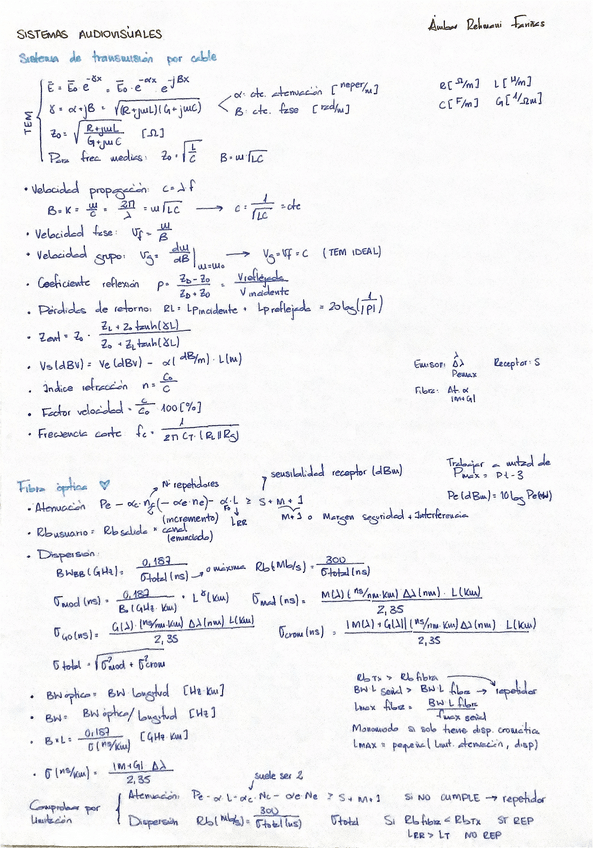 Ámbar Rehmani Fariñas
SISTEMAS AUDIOVISUALES
Sistema de transmisión por cable
TEM
Ē = Ē₀·e^-γx = Ē₀·e^-αx · e^-jBx
γ = α + jB = √(R+jωL)(G+jωC)
α: cte. atenuación [neper/m]
B: cte. fase [rad/m]
R[Ω/m] L[H/m]
C[F/m] G[1/Ωm]
Z₀ = √(R+jωL / G+jωC) [Ω]
Para frec medias: Z₀ = √(L/C) B = ω√LC
• Velocidad propagación: c = λf
B = K = ω/c = 2π/λ = ω√LC → c = 1/√LC = cte
• Velocidad fase: Vf = ω/B
• Velocidad grupo: Vg = dω/dB |ω=ω₀ → Vg = Vf = C (TEM IDEAL)
• Coeficiente reflexión ρ = (Z_D - Z₀)/(Z_D + Z₀) = V reflejada / V incidente
• Pérdidas de retorno: RL = LPincidente - LPreflejada = 20 log(1/|ρ|)
• Zent = Z₀ · (Z_L + Z₀ tanh(γL)) / (Z₀ + Z_L tanh(γL))
• Vs(dBV) = Ve(dBV) - α(dB/m) · L(m)
• Indice refracción n = C₀/C
• Factor velocidad = C/C₀ · 100[%]
• Frecuencia corte fc = 1 / 2π C_T · (R_L || R_S)
Emisor: λ Δλ Pemax Receptor: S
Fibra: Δf, α |M+G|
Fibra óptica ♡
Nº repetidores
sensibilidad receptor (dBm)
Trabajar a mitad de
Pmax = Pt - 3
• Atenuación Pe - αc·nc (-αe·ne) - α·L ≥ S + M + 1
Pe(dBm) = 10 log Pe(mW)
(incremento) FO L_RR M+1 o Margen seguridad + Interferencia
• Rb usuario = Rb salida * canal
(enunciado)
• Dispersión:
BW_BB(GHz) = 0,187 / σtotal(ns) → σ máxima Rb(Mb/s) = 300 / σtotal(ns)
σmod(ns) = 0,187 / B₀(GHz·Km) · L^γ(Km) σmat(ns) = M(λ)(ns/nm·Km) Δλ(nm) · L(Km) / 2,35
σGO(ns) = G(λ)·(ns/nm·Km) Δλ(nm) L(Km) / 2,35 σcrom(ns) = |M(λ)+G(λ)| (ns/nm·Km) Δλ(nm) L(Km) / 2,35
σtotal = √σ²mod + σ²crom
• BW óptica = BW·longitud [Hz·Km]
• BW = BW óptica/longitud [Hz]
• B·L = 0,187 / σ(ns/Km) [GHz Km]
• σ(ns/Km) = |M+G| Δλ / 2,35
Rb Tx > Rb fibra
BW L señal > BW L fibra → repetidor
Lmax fibra = BW L fibra / fmax señal
Monomodo si solo tiene disp. cromática
LMAX = pequeña (Limit. atenuación, disp)
suele ser 2
Comprobar por limitación
Atenuación: Pe - α·L - αc·Nc - αe Ne ≥ S + M + 1 SI NO CUMPLE → repetidor
Dispersión Rb(Mb/s) = 300 / σtotal(ns) σtotal Si Rb fibra < Rb TX SI REP
L_RR > L_T NO REP